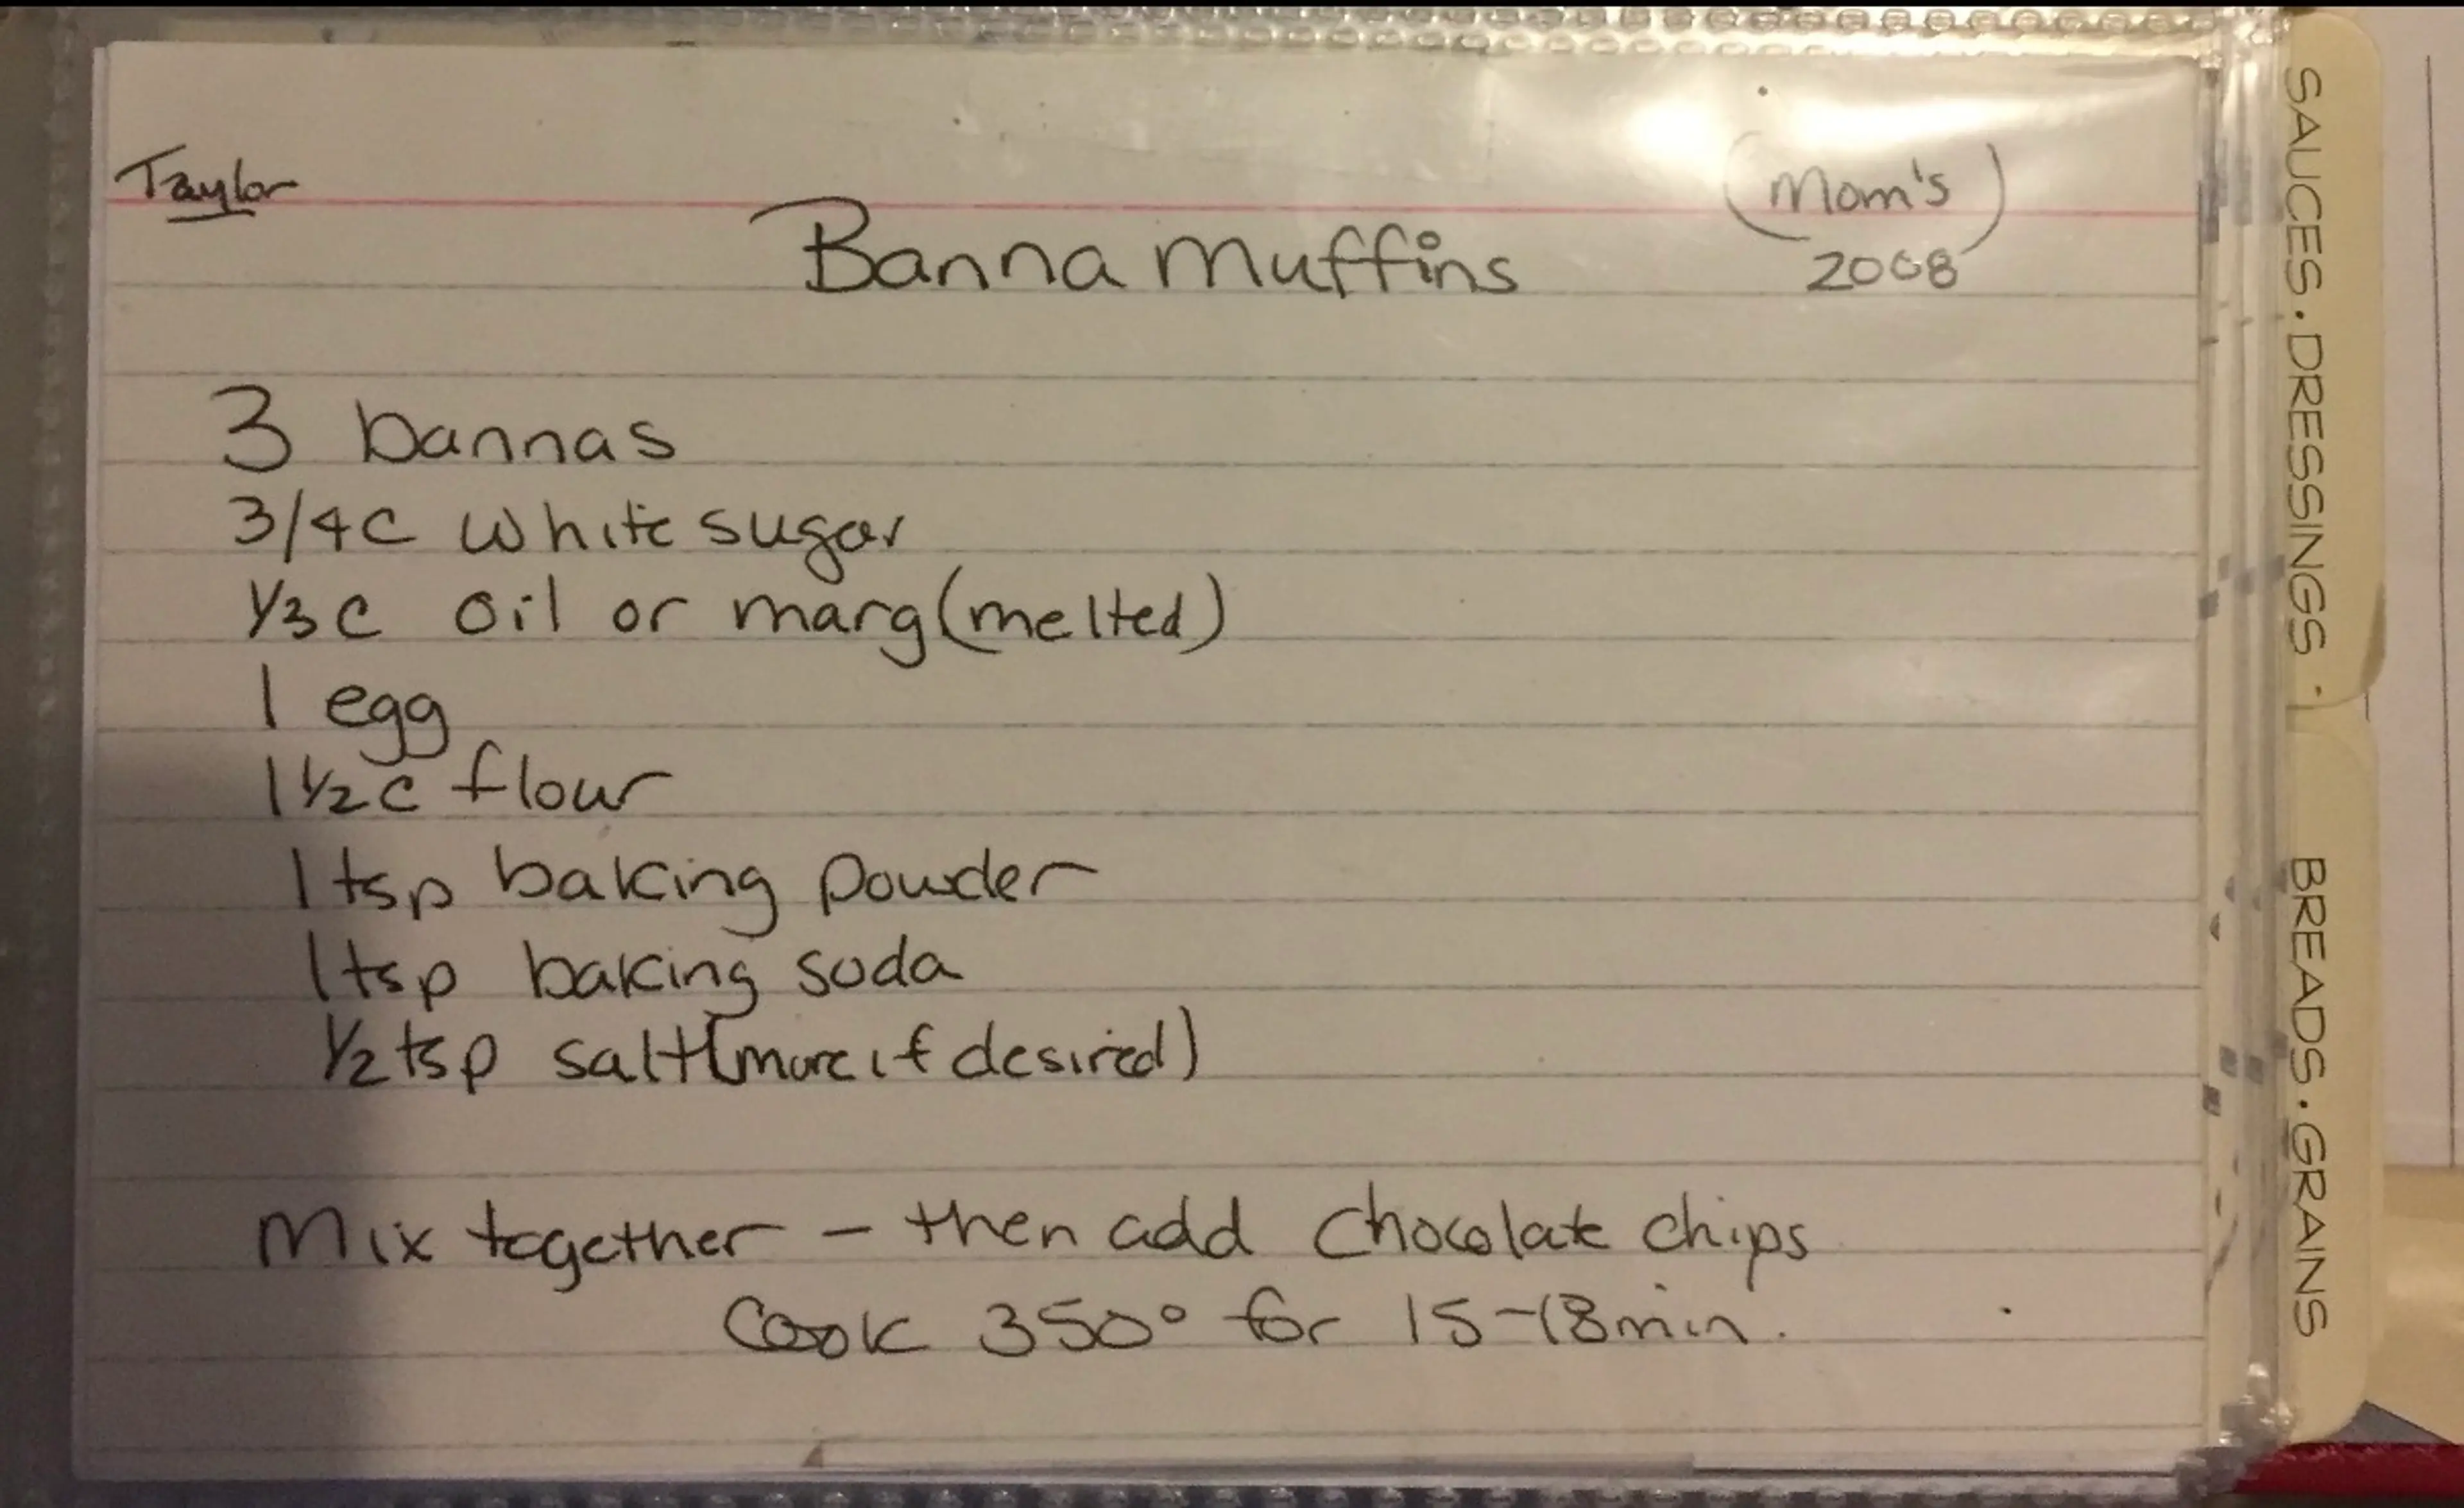 Taylor
(Mom's)
2008
Banna Muffins
3 bannas
3/4 c white sugar
1/3 c oil or marg (melted)
1 egg
1 1/2 c flour
1 tsp baking powder
1 tsp baking soda
1/2 tsp salt (more if desired)
Mix together - then add chocolate chips
Cook 350° for 15-18 min.
SAUCES · DRESSINGS
BREADS · GRAINS